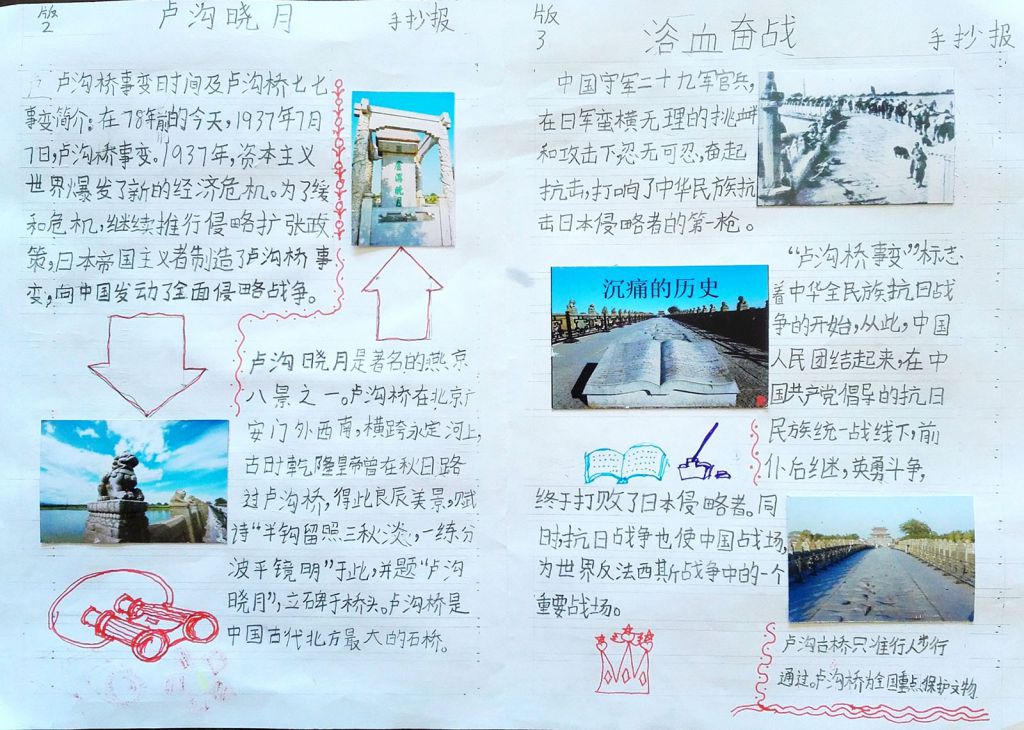 版2
卢沟晓月
手抄报
卢沟桥事变日时间及卢沟桥七七
事变简介:在78年前的今天,1937年7月
7日,卢沟桥事变。1937年,资本主义
世界爆发了新的经济危机。为了缓
和危机,继续推行侵略扩张政
策,日本帝国主义者制造了卢沟桥事
变,向中国发动了全面侵略战争。
卢沟晓月
卢沟晓月是著名的燕京
八景之一。卢沟桥在北京广
安门外西南,横跨永定河上,
古时乾隆皇帝曾在秋日路
过卢沟桥,得此良辰美景,赋
诗“半钩留照三秋淡,一练分
波平镜明”于此,并题“卢沟
晓月”,立碑于桥头。卢沟桥是
中国古代北方最大的石桥。
版3
浴血奋战
手抄报
中国守军二十九军官兵,
在日军蛮横无理的挑衅
和攻击下忍无可忍,奋起
抗击,打响了中华民族抗
击日本侵略者的第一枪。
沉痛的历史
“卢沟桥事变”标志
着中华全民族抗日战
争的开始,从此,中国
人民团结起来,在中
国共产党倡导的抗日
民族统一战线下,前
仆后继,英勇斗争,
终于打败了日本侵略者。同
时抗日战争也使中国战场,
为世界反法西斯战争中的一个
重要战场。
卢沟古桥只准行人步行
通过。卢沟桥为全国重点保护文物